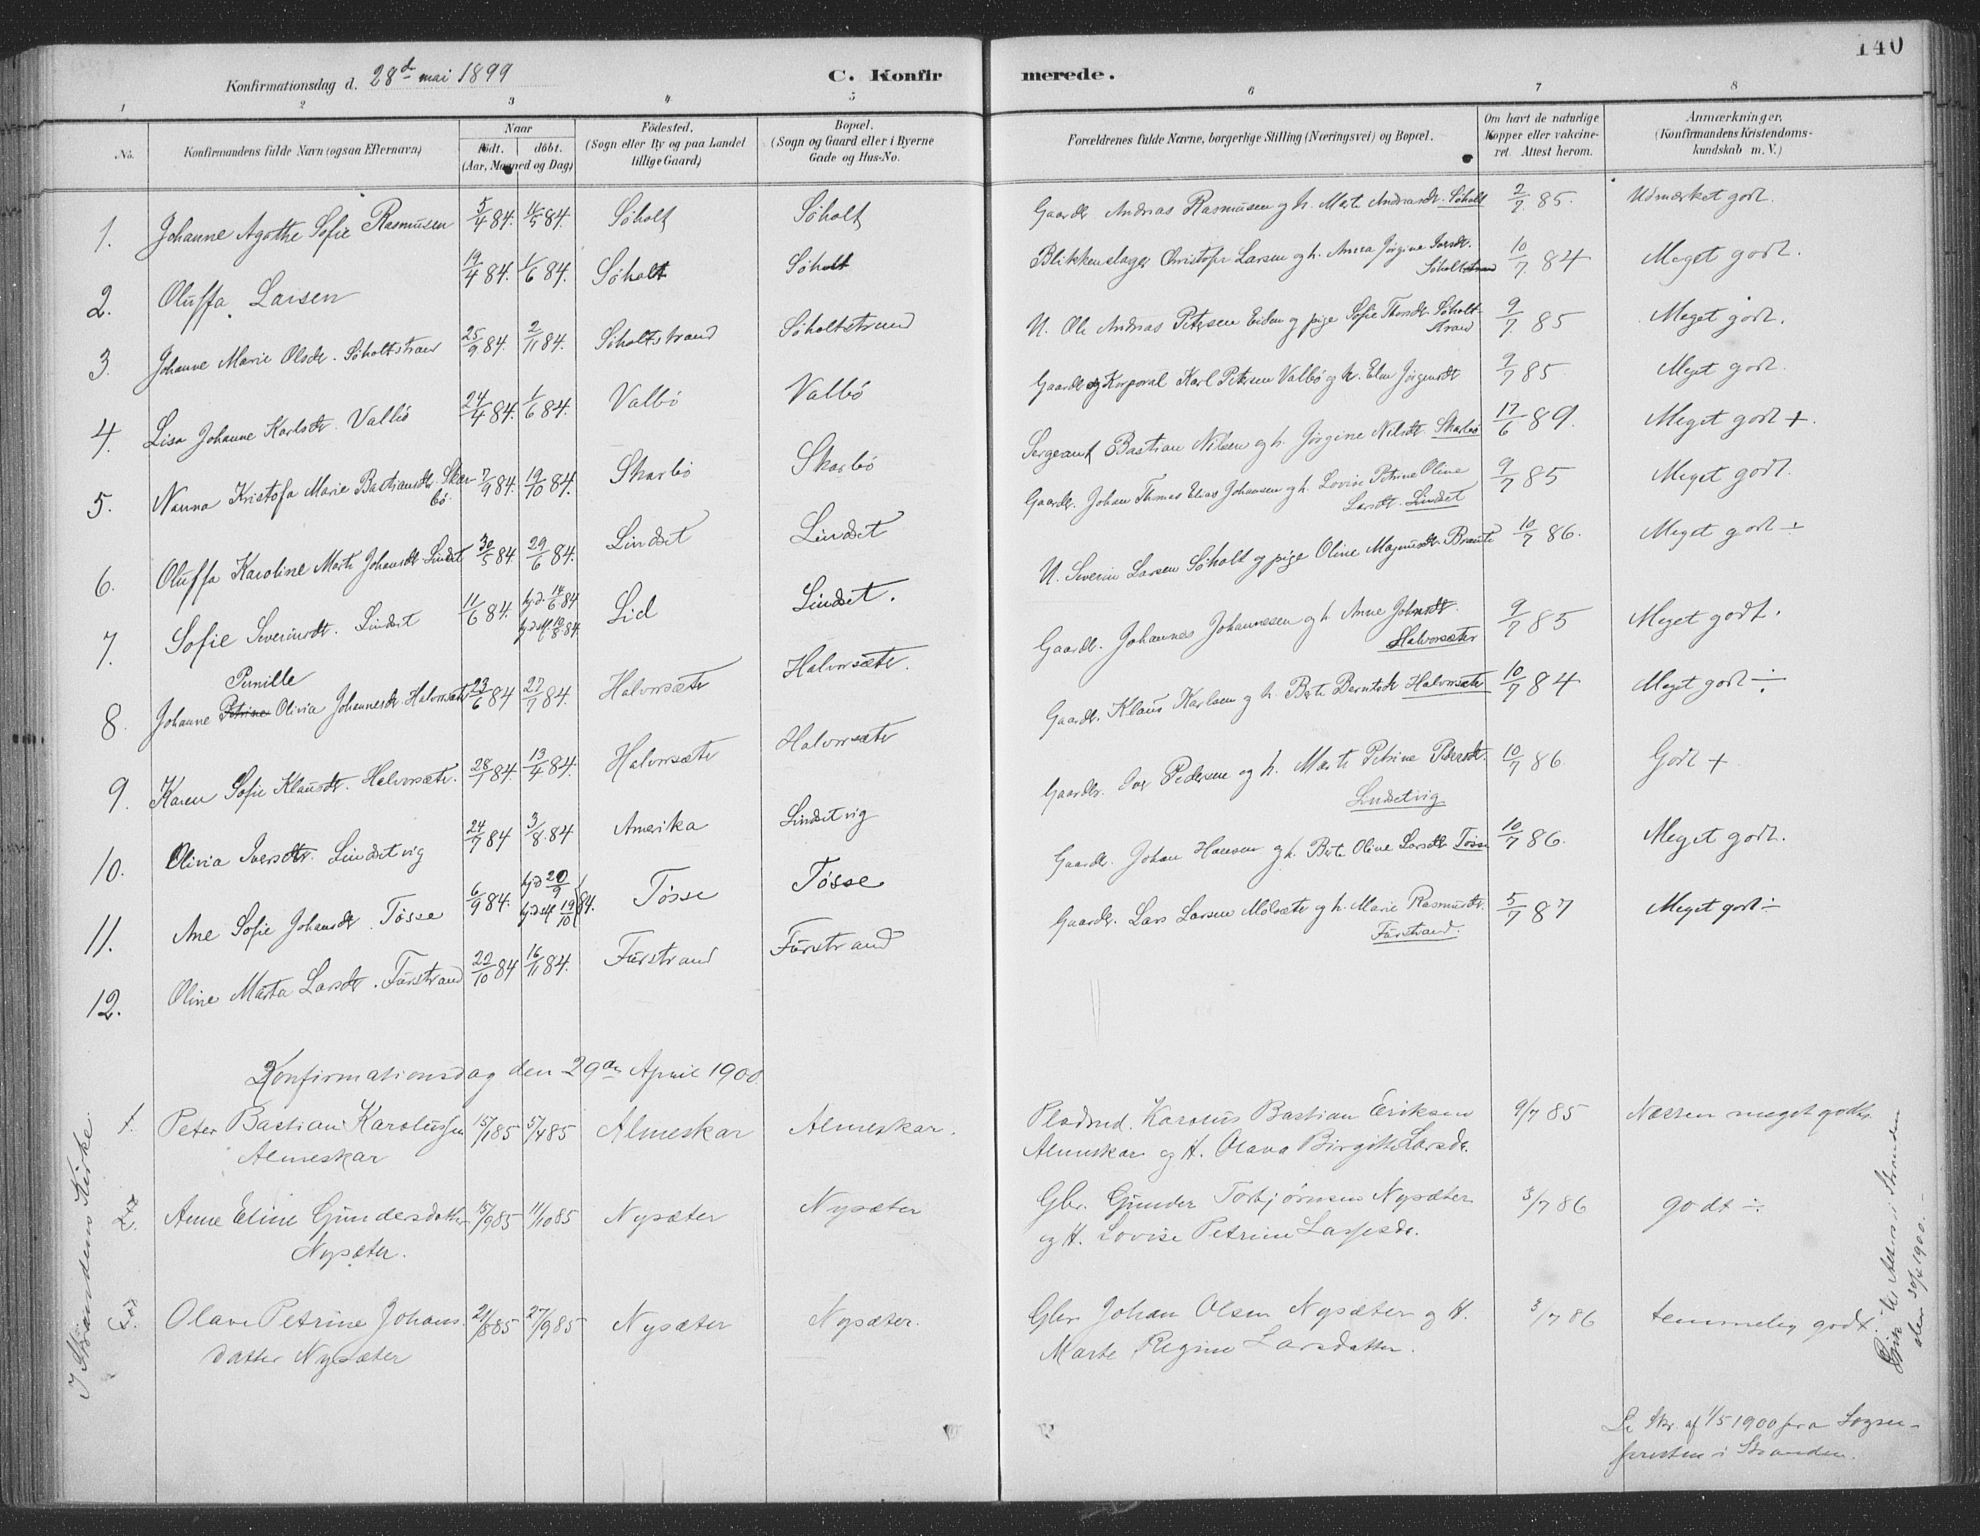 140
Konfirmationsdag d. 28d mai 1899
C. Konfirmerede.
1 2 3 4 5 6 7 8
No. Konfirmandens fulde Navn (ogsaa Efternavn) Naar født. døbt. (Aar, Maaned og Dag) Fødested. (Sogn eller By og paa Landet tillige Gaard) Bopæl. (Sogn og Gaard eller i Byerne Gade og Hus-No. Forældrenes fulde Navne, borgerlige Stilling (Næringsvei) og Bopæl. Om havt de naturlige Kopper eller vakcineret. Attest herom. Anmærkninger. (Konfirmandens Kristendomskundskab m. V.)
1. Johanne Agathe Sofie Rasmusen 5/4 84. /5 84. Søholt Søholt Gaardr. Andreas Rasmusen og h. Mat. Andreasdt. Søholt 2/7 85. Udmærket godt.
2. Oluffa Larsen 19/4 84. 1/6 84. Søholt Søholt Blikkenslager Christofer Larsen og h. Anna Jørgine Iversdt. Søholtstrand 10/7 84 Meget godt.
3. Johanne Marie Olsdr. Søholtstrand 25/9 84. 2/11 84. Søholtstrand Søholtstrand U. Ole Andreas Petersen Eiden og pige Sofie Thorsdt. Søholtstrand 9/7 85 Meget godt.
4. Lisa Johanne Karlsdr. Valbö 24/4 84. 1/6 84. Valbö Valbö Gaardr. og Korporal Karl Petersen Valbö og h. Else Jörgensdt 9/7 85. Meget godt.
5. Nanna Kristofa Marie Bastiansdtr. Skarbö. 7/9 84. 19/10 84. Skarbö Skarbö Sergeant Bastian Nilsen og h. Jørgine Nilsdt. Skarbö 17/6 89. Meget godt +.
6. Oluffa Karoline Marte Johansdt Lindset 30/5 84. 29/6 84. Lindset Lindset Gaardr. Johan Thomas Elias Johansen og h. Lovise Petrine Oline Larsdt. Lindset 9/7 85 Meget godt.
7. Sofie Severinsdt. Lindset 11/6 84. hjd. 14/6 84 hjdst 10/8. 84. Lid Lindset. U. Severin Larsen Søholt og pige Oline Magnusdt. Braute 10/7 86. Meget godt ÷
8. Johanne Petrine Pernille Olivia Johannesdt. Halvorsæter 23/6 84 27/7 84. Halvorsæter Halvorsæter. Gaardr. Johannes Johannesen og h. Anne Johnsdt. Halvorsæter 9/7 85 Meget godt.
9. Karen Sofie Klausdt. Halvorsæter. 28/1 84 13/4 84. Halvorsæter Halvorsæter Gaardr. Klaus Karlsen og h. Berte Berntsdt Halvorsæter 10/7 84 Meget godt ÷
10. Olivia Iversdtr. Lindsetvig 24/7 84 3/8. 84 Amerika Lindsetvig Gaardr. Iver Pedersen og h. Marte Petrine Petersdt. Lindsetvig 10/7 86. Godt +
11. Ane Sofie Johansdt. Tøsse 6/9 84. hjd 20/9 hjdst 19/10 84. Tøsse Tøsse Gaardr. Johan Hansen og h. Berte Oline Larsdtr Tøsse 10/7 86. Meget godt.
12. Oline Marta Larsdt. Furstrand 22/10 84 16/11 84. Furstrand Furstrand Gaardr. Lars Larsen Molsæter og h. Marie Rasmusdt. Furstrand. 5/7 87 Meget godt ÷
Konfirmationsdag den 29de April 1900.
I Strandens Kirke.
1. Peter Bastian Karolussen Almeskar 15/1 85 5/4 85 Almeskar Almeskar. Pladsmd. Karolus Bastian Eriksen Almeskar og H. Olava Birgitte Larsdr. 9/7 85 Næsten meget godt.
2. Anne Eline Gundersdatter Nysæter. 15/9 85 11/10 85 Nysæter Nysæter Gbr. Gunder Torbjørnsen Nysæter og H. Lovise Petrine Lassesdr. 3/7 86 godt ÷
3. Olave Petrine Johansdatter Nysæter 21/8 85 27/9 85 Nysæter Nysæter. Gbr. Johan Olsen Nysæter og H. Marte Regine Larsdatter. 3/7 86 temmelig godt.
i Stranden den 30/4 1900.
Se Skr. af 1/5 1900 fra Sognepresten i Stranden.